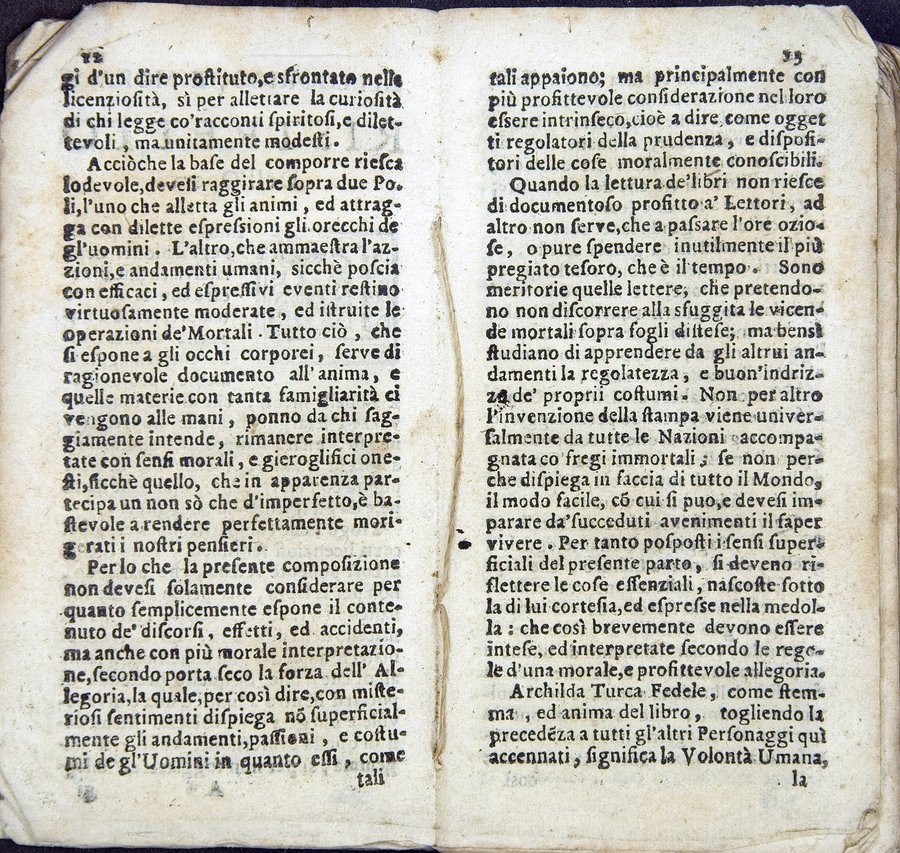 12
gi d'un dire proſtituto,e sfrontato nelle
licenzioſità, sì per allettare la curioſità
di chi legge co'racconti ſpiritoſi,e dilet-
tevoli, ma unitamente modeſti.
Acciòche la baſe del comporre rieſca
lodevole,deveſi raggirare ſopra due Po-
li,l'uno che alletta gli animi, ed attrag-
ga con dilette eſpreſſioni gli orecchi de
gl'uomini. L'altro,che ammaeſtra l'az-
zioni,e andamenti umani, sicchè poſcia
con efficaci, ed eſpreſſivi eventi reſtino
virtuoſamente moderate, ed iſtruite le
operazioni de'Mortali. Tutto ciò, che
ſi eſpone a gli occhi corporei, ſerve di
ragionevole documento all'anima, e
quelle materie con tanta famigliarità ci
vengono alle mani, ponno da chi ſag-
giamente intende, rimanere interpre-
tate con ſenſi morali, e gieroglifici one-
ſti,ſicchè quello, che in apparenza par-
tecipa un non sò che d'imperfetto,è ba-
ſtevole a rendere perfettamente mori-
gerati i noſtri penſieri.
Per lo che la preſente compoſizione
non deveſi ſolamente conſiderare per
quanto ſemplicemente eſpone il conte-
nuto de' diſcorſi, effetti, ed accidenti,
ma anche con più morale interpretazio-
ne,secondo porta ſeco la forza dell' Al-
legoria,la quale,per così dire,con miſte-
rioſi ſentimenti diſpiega nõ ſuperficial-
mente gli andamenti,paſſioni, e coſtu-
mi de gl'Uomini in quanto eſſi, come
tali
33
tali appaiono; ma principalmente con
più profittevole conſiderazione nel loro
eſſere intrinſeco,cioè a dire come ogget
ti regolatori della prudenza, e diſpoſi-
tori delle coſe moralmente conoſcibili.
Quando la lettura de'libri non rieſce
di documentoſo profitto a' Lettori, ad
altro non ſerve,che a paſſare l'ore ozio-
ſe, o pure ſpendere inutilmente il più
pregiato teſoro, che è il tempo. Sono
meritorie quelle lettere, che pretendo-
no non diſcorrere alla sfuggita le vicen-
de mortali ſopra fogli diſteſe; ma bensì
ſtudiano di apprendere da gli altrui an-
damenti la regolatezza, e buon'indriz-
za de' proprii coſtumi. Non per altro
l'invenzione della ſtampa viene univer-
ſalmente da tutte le Nazioni accompa-
gnata co' fregi immortali; ſe non per-
che diſpiega in faccia di tutto il Mondo,
il modo facile, cõ cui si puo,e deveſi im-
parare da'ſucceduti avenimenti il ſaper
vivere. Per tanto poſpoſti i ſenſi ſuper-
ficiali del preſente parto, ſi deveno ri-
flettere le coſe eſſenziali, naſcoſte ſotto
la di lui corteſia,ed eſpreſſe nella medol-
la: che così brevemente devono eſſere
inteſe, ed interpretate ſecondo le rego-
le d'una morale,e profittevole allegoria.
Archilda Turca Fedele, come ſtem-
ma, ed anima del libro, togliendo la
precedẽza a tutti gl'altri Perſonaggi quì
accennati, ſignifica la Volontà Umana,
la